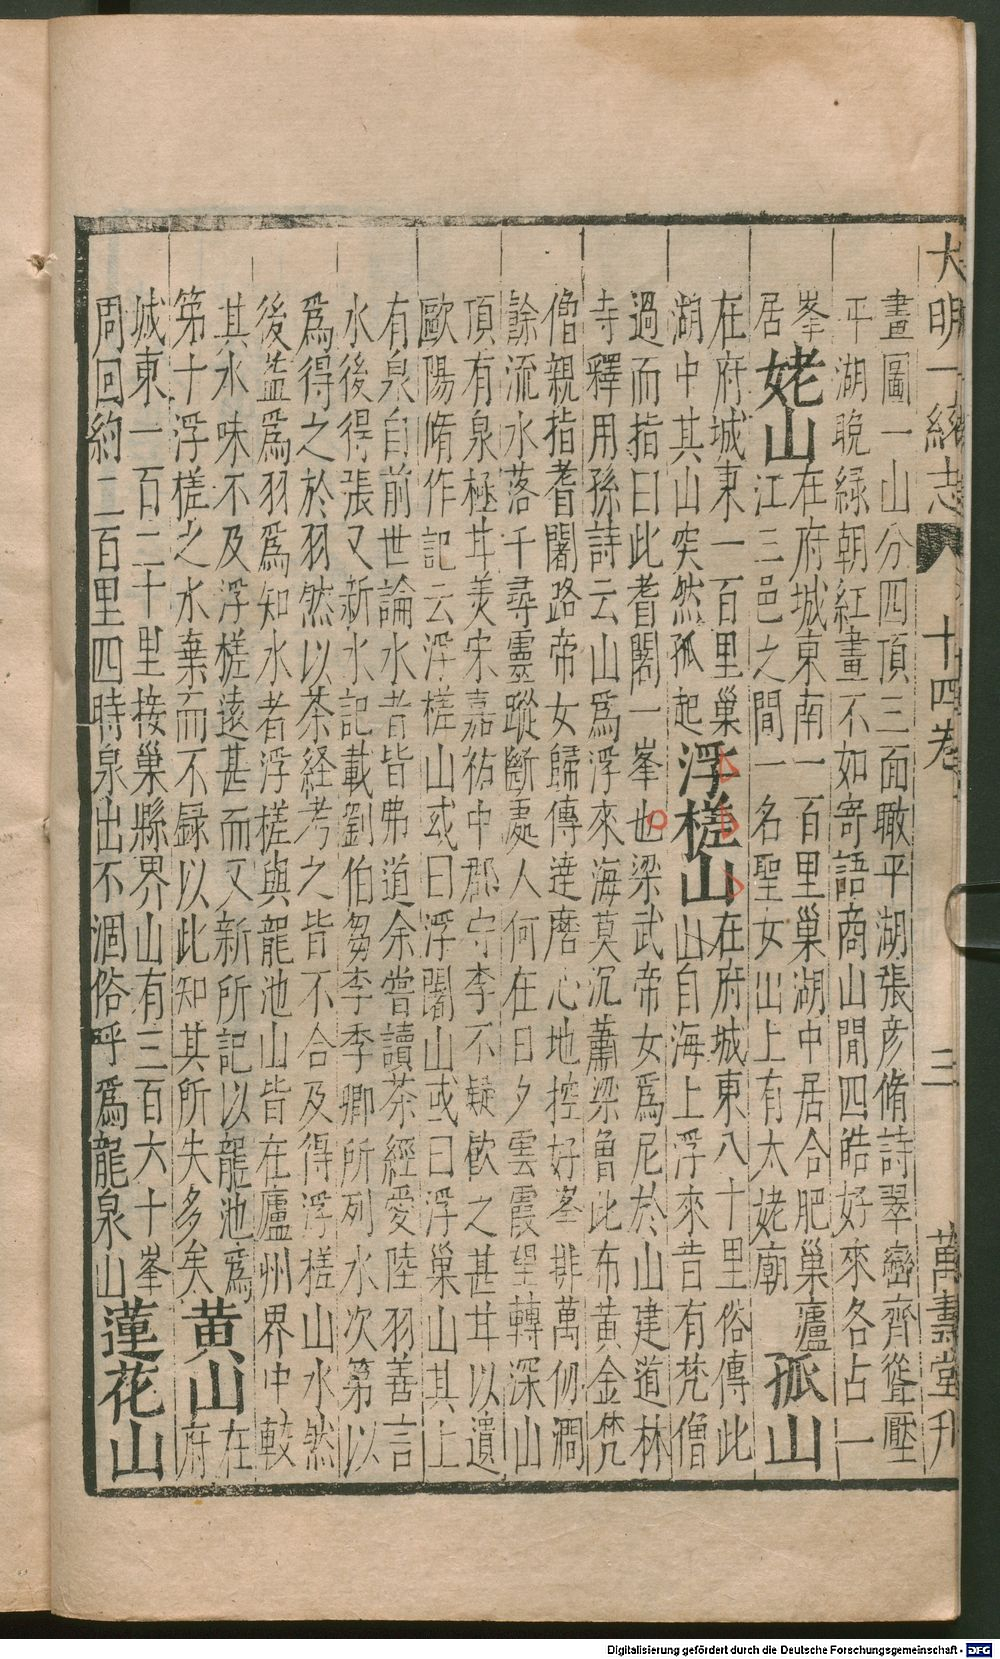 大明一統志 十四卷 三 萬壽堂刋
畫圖一山分四頂三面瞰平湖張彦脩詩翠巒齊聳壓
平湖晚緑朝紅畫不如寄語商山閒四皓好來各占一
峯
姥山
在府城東南一百里巢湖中居合肥巢廬
居江三邑之間一名聖女山上有太姥廟
孤山
在府城東一百里巢
湖中其山突然孤起
浮槎山
在府城東八十里俗傳此
山自海上浮來昔有梵僧
過而指曰此耆闍一峯也梁武帝女爲尼於山建道林
寺釋用孫詩云山爲浮來海莫沉蕭梁魯此布黄金梵
僧親指耆闍路帝女歸傳達磨心地控好峯排萬仞澗
餘流水落千尋靈蹤斷處人何在日夕雲霞望轉深山
頂有泉極甘美宋嘉祐中郡守李不疑飲之甚甘以遺
歐陽脩作記云浮槎山或曰浮闍山或曰浮巢山其上
有泉自前世論水者皆弗道余嘗讀茶經愛陸羽善言
水後得張又新水記載劉伯芻李季卿所列水次第以
爲得之於羽然以茶経考之皆不合及得浮槎山水然
後益爲羽爲知水者浮槎與龍池山皆在廬州界中較
其水味不及浮槎遠甚而又新所記以龍池爲
第十浮槎之水棄而不録以此知其所失多矣
黄山
在府
城東一百二十里接巢縣界山有三百六十峯
周回約二百里四時泉出不涸俗呼爲龍泉山
蓮花山
Digitalisierung gefördert durch die Deutsche Forschungsgemeinschaft - DFG